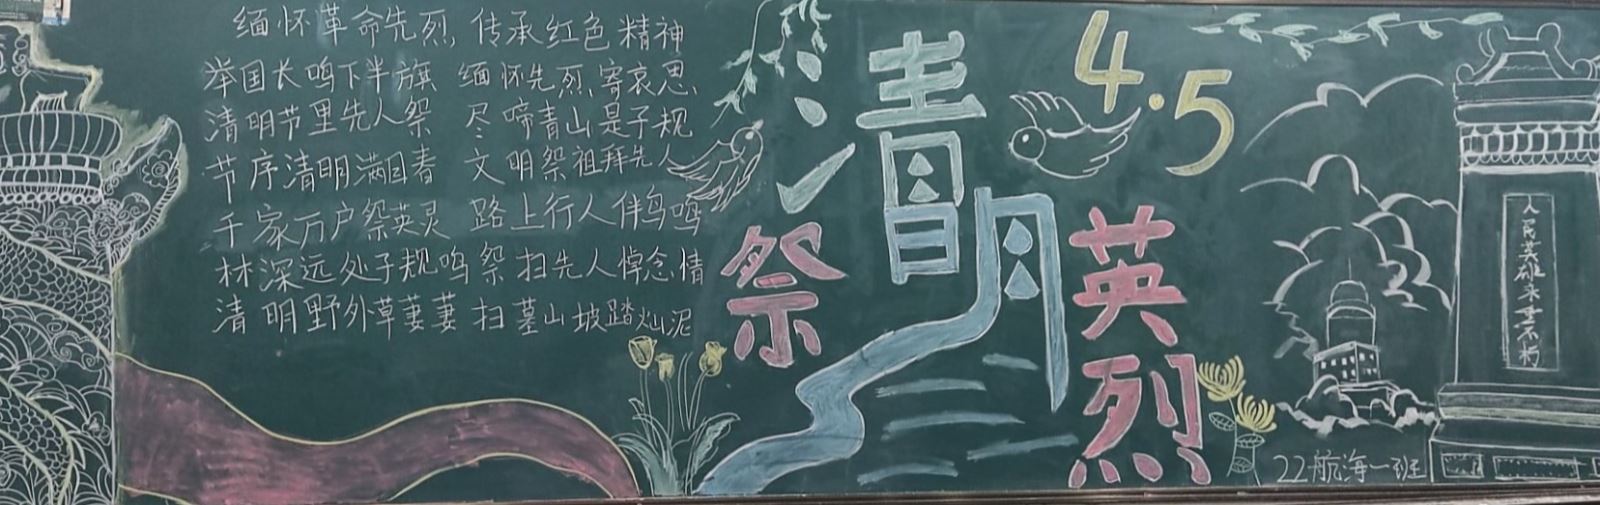 缅怀革命先烈,传承红色精神
举国长鸣下半旗 缅怀先烈寄哀思
清明节里先人祭 尽啼青山是子规
节序清明满目春 文明祭祖拜先人
千家万户祭英灵 路上行人伴鸟鸣
林深远处子规鸣 祭扫先人悼念情
清明野外草萋萋 扫墓山坡踏灿泥
清明
4.5
祭英烈
人民英雄永垂不朽
22航海一班